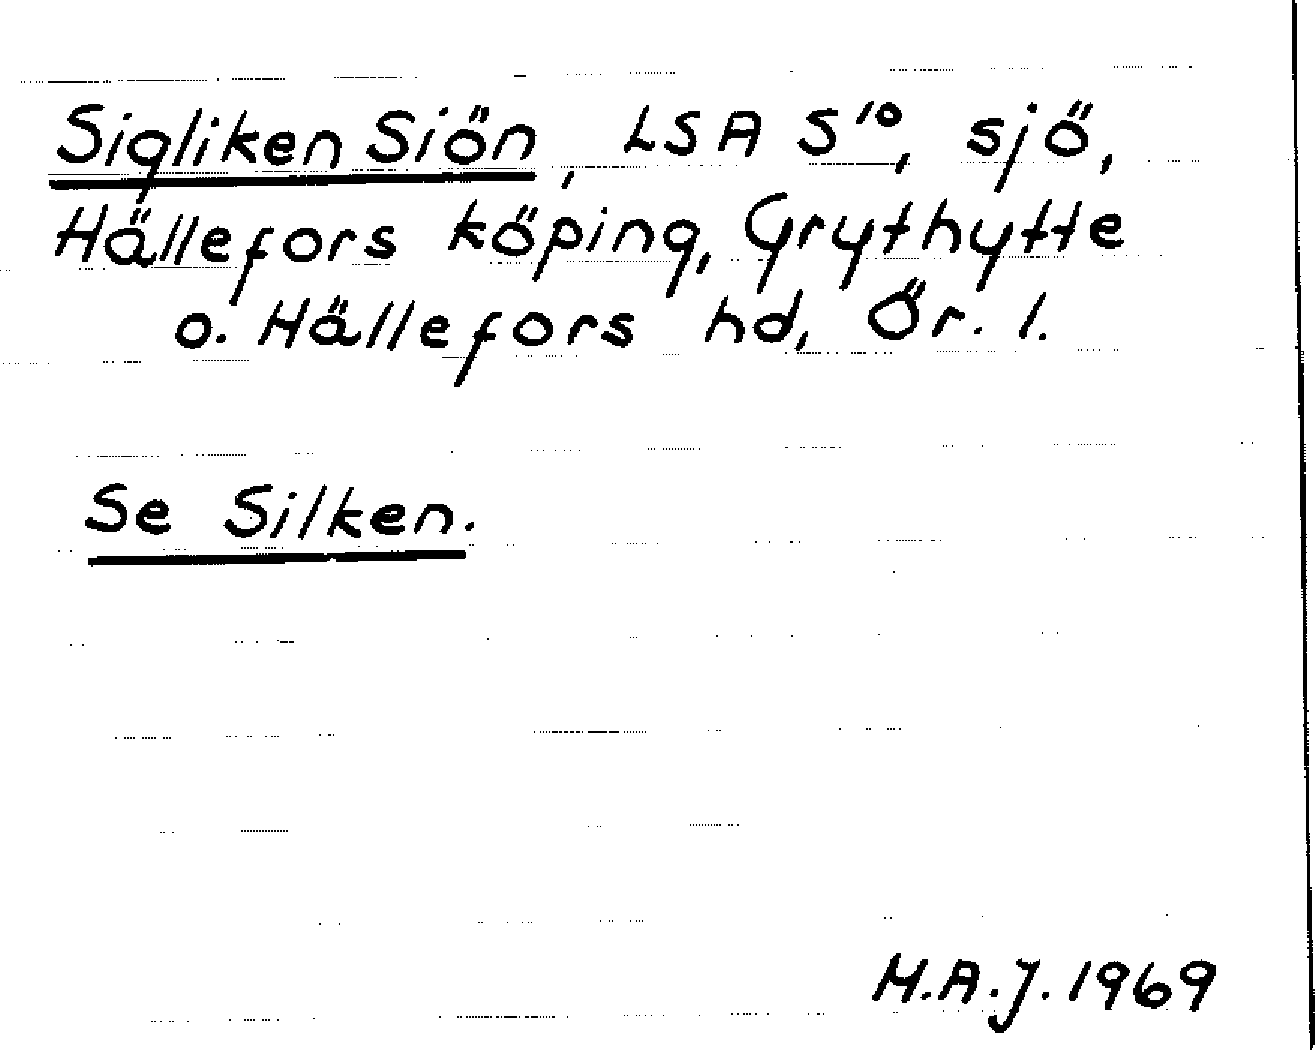 Sigliken Siön, LSA S¹⁰, sjö,
Hällefors köping, Grythytte
o. Hällefors hd, Ör. l.
Se Silken.
M.A.J. 1969